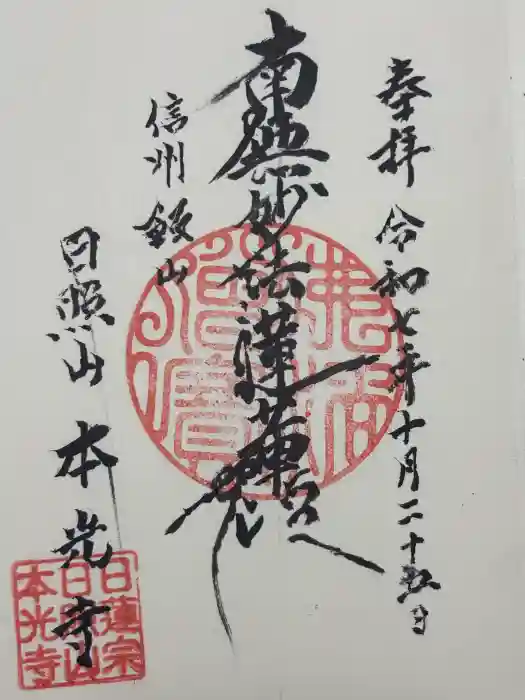 奉拝 令和七年十月二十五日
南無妙法蓮華経
信州飯山
日照山 本光寺
佛法僧寶
日蓮宗
日照山
本光寺